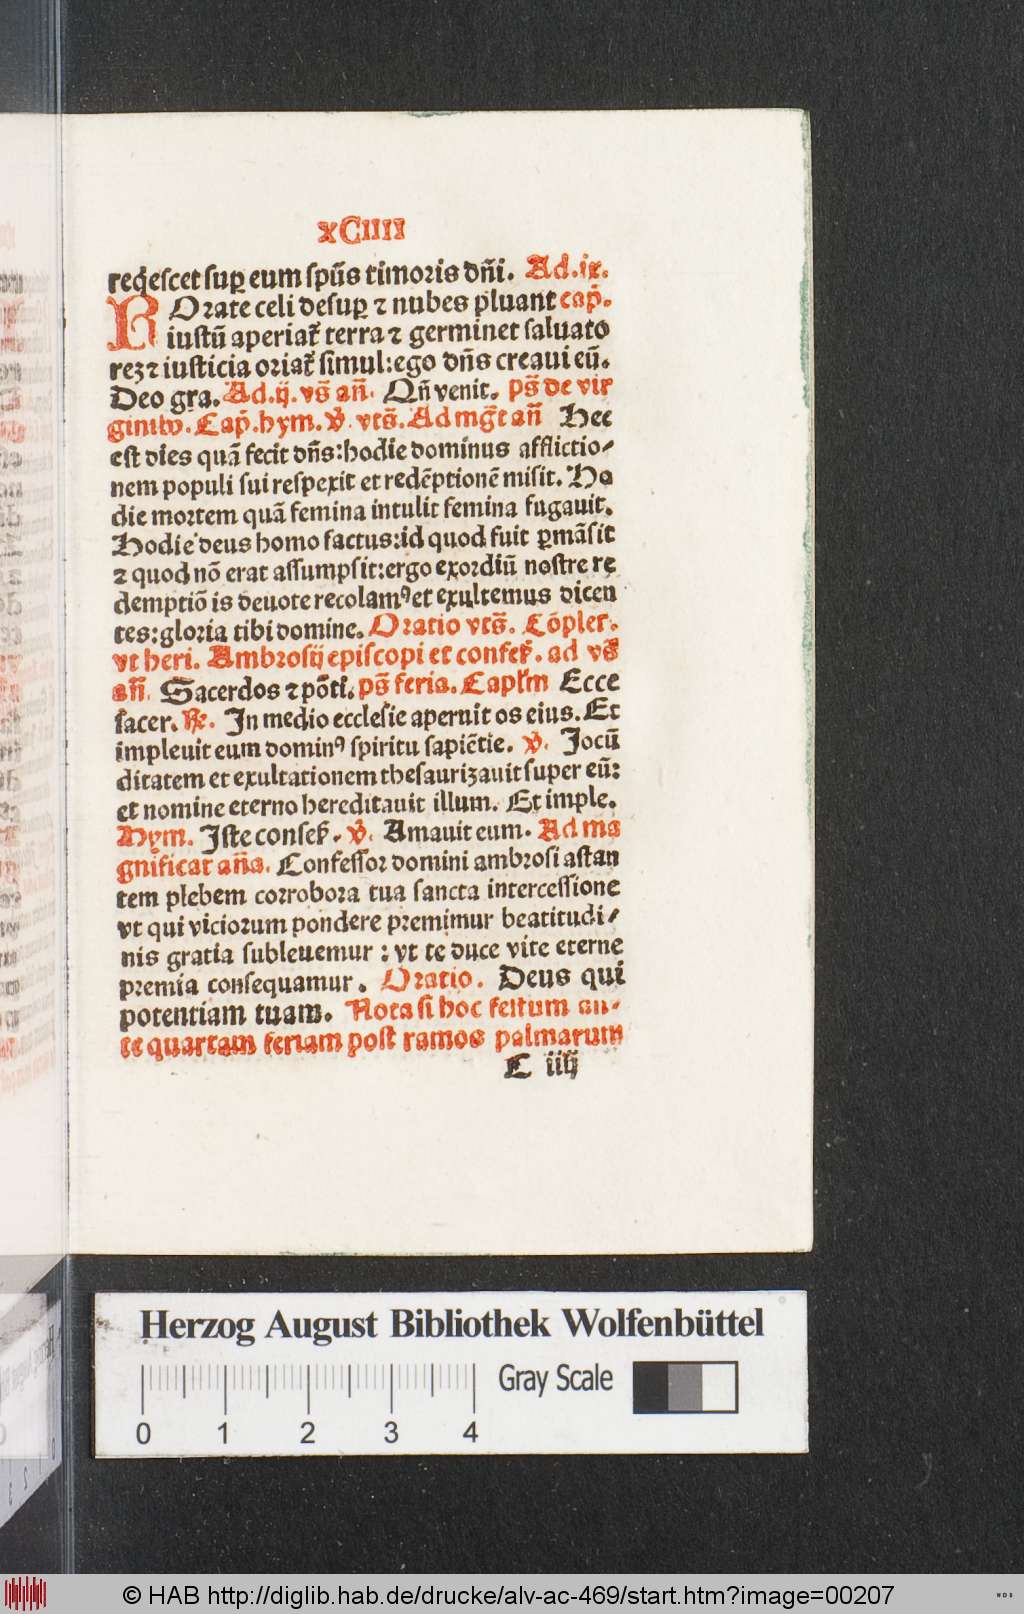 xCiiii
reqescet suꝑ eum spūs timoris dn̄i. Ad.ix.
ROrate celi desuꝑ ⁊ nubes pluant cap̄.
iustū aperiat᷑ terra ⁊ germinet saluato
reꝫ ⁊ iusticia oriat᷑ simul:ego dn̄s creaui eū.
Deo gra. Ad.ij.vs̄ an̄. Qn̄ venit. ps̄ de vir
ginib9. Cap̄.hym.v̄.vts̄.Ad mgt̄ an̄ Hec
est dies quā fecit dn̄s:hodie dominus afflictio⸗
nem populi sui respexit et redēptionē misit. Ho
die mortem quā femina intulit femina fugauit.
Hodie deus homo factus:id quod fuit ꝑmāsit
⁊ quod nō erat assumpsit:ergo exordiū nostre re
demptiōis deuote recolamꝰ et exultemus dicen
tes:gloria tibi domine. Oratio vts̄. Cōpler.
vt heri. Ambrosij episcopi et confes̄. ad vs̄
an̄. Sacerdos ⁊ pōti. ps̄ feria. Caplm̄ Ecce
sacer. ℟. In medio ecclesie aperuit os eius. Et
impleuit eum dominꝰ spiritu sapiētie. v̄. Jocū
ditatem et exultationem thesaurizauit super eū:
et nomine eterno hereditauit illum. Et imple.
Hym. Iste confes̄. v̄. Amauit eum. Ad ma
gnificat an̄a. Confessor domini ambrosi astan
tem plebem corrobora tua sancta intercessione
vt qui viciorum pondere premimur beatitudi⸗
nis gratia subleuemur : vt te duce vite eterne
premia consequamur. Oratio. Deus qui
potentiam tuam. Nota si hoc festum an⸗
te quartam feriam post ramos palmarum
C iiij
Herzog August Bibliothek Wolfenbüttel
Gray Scale
0 1 2 3 4
© HAB http://diglib.hab.de/drucke/alv-ac-469/start.htm?image=00207